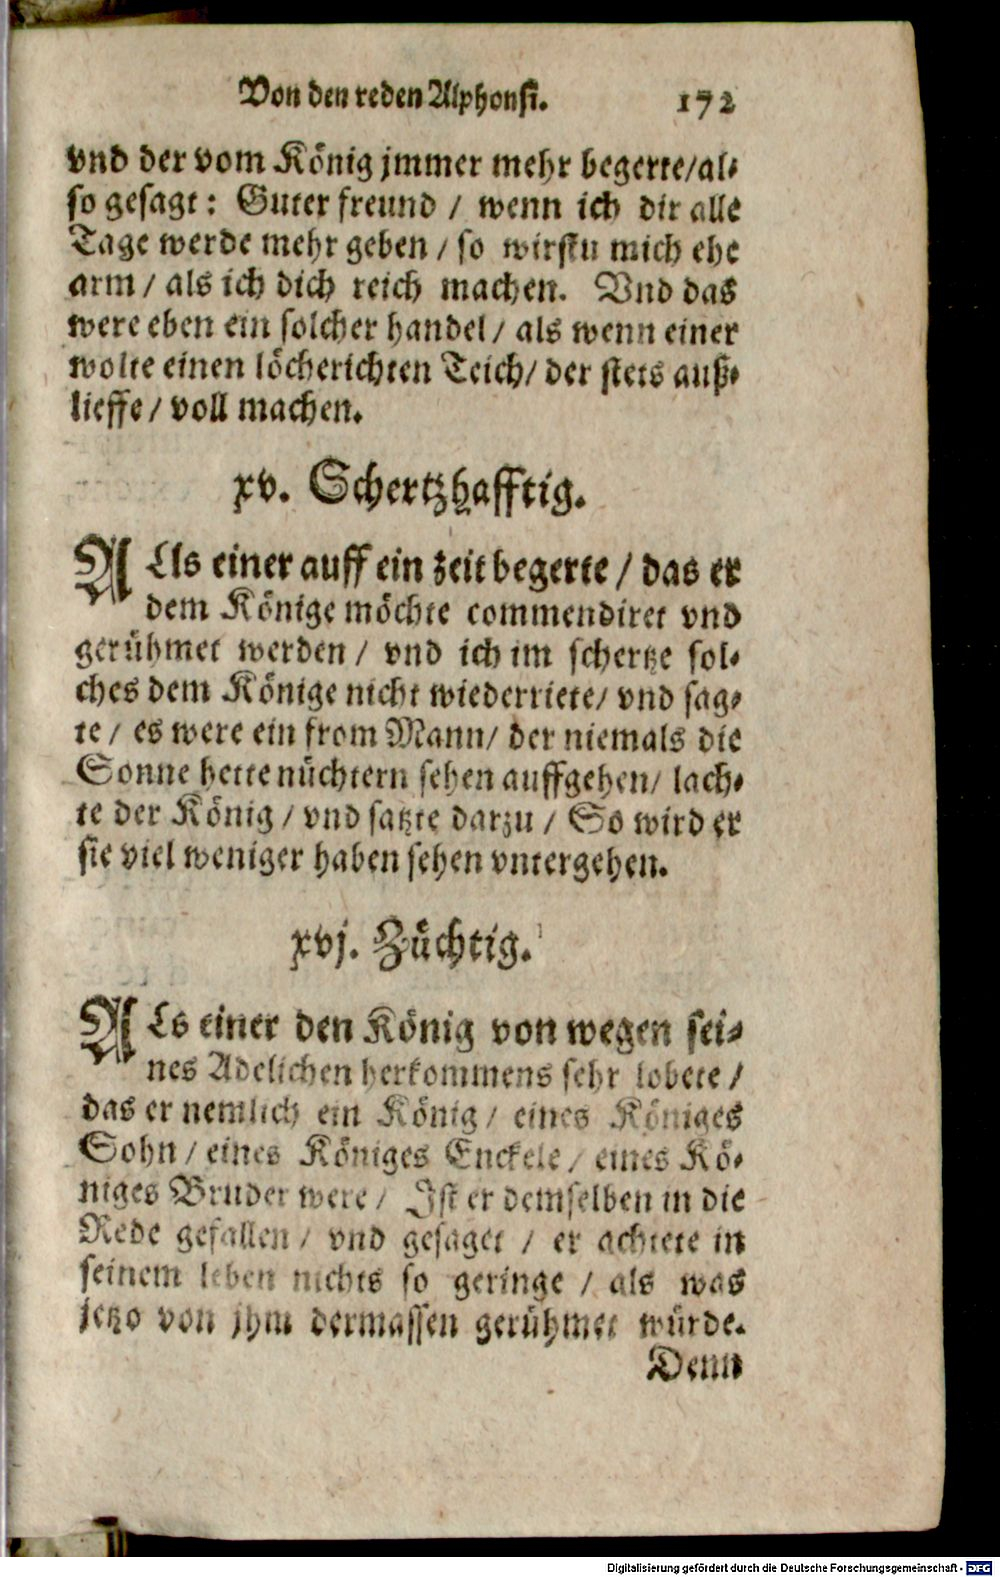 Von den reden Alphonsi. 172
vnd der vom König jmmer mehr begerte/al-
so gesagt: Guter freund / wenn ich dir alle
Tage werde mehr geben / so wirstu mich ehe
arm / als ich dich reich machen. Vnd das
were eben ein solcher handel / als wenn einer
wolte einen löcherichten Teich/ der stets auß-
lieffe / voll machen.
xv. Schertzhafftig.
ALls einer auff ein zeit begerte / das er
dem Könige möchte commendiret vnd
gerühmet werden / vnd ich im schertze sol-
ches dem Könige nicht wiederriete/ vnd sag-
te / es were ein from Mann/ der niemals die
Sonne hette nüchtern sehen auffgehen/ lach-
te der König / vnd satzte darzu / So wird er
sie viel weniger haben sehen vntergehen.
xvj. Züchtig.
ALs einer den König von wegen sei-
nes Adelichen herkommens sehr lobete /
das er nemlich ein König / eines Königes
Sohn / eines Königes Enckele / eines Kö-
niges Bruder were / Ist er demselben in die
Rede gefallen / vnd gesaget / er achtete in
seinem leben nichts so geringe / als was
jetzo von jhm dermassen gerühmet würde.
Denn
Digitalisierung gefördert durch die Deutsche Forschungsgemeinschaft - DFG